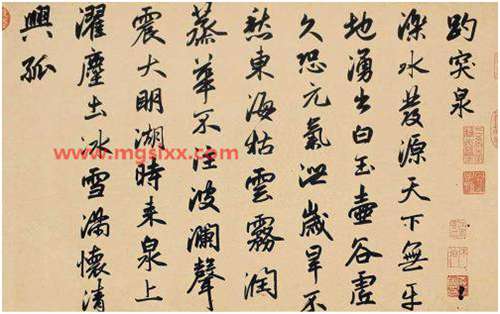 趵突泉
濼水發源天下無平
地湧出白玉壺谷虛
久恐元氣泄歲旱不
愁東海枯雲霧潤
蒸華不注波瀾聲
震大明湖時来泉上
濯塵土冰雪滿懷清
興孤
www.mgsixx.com